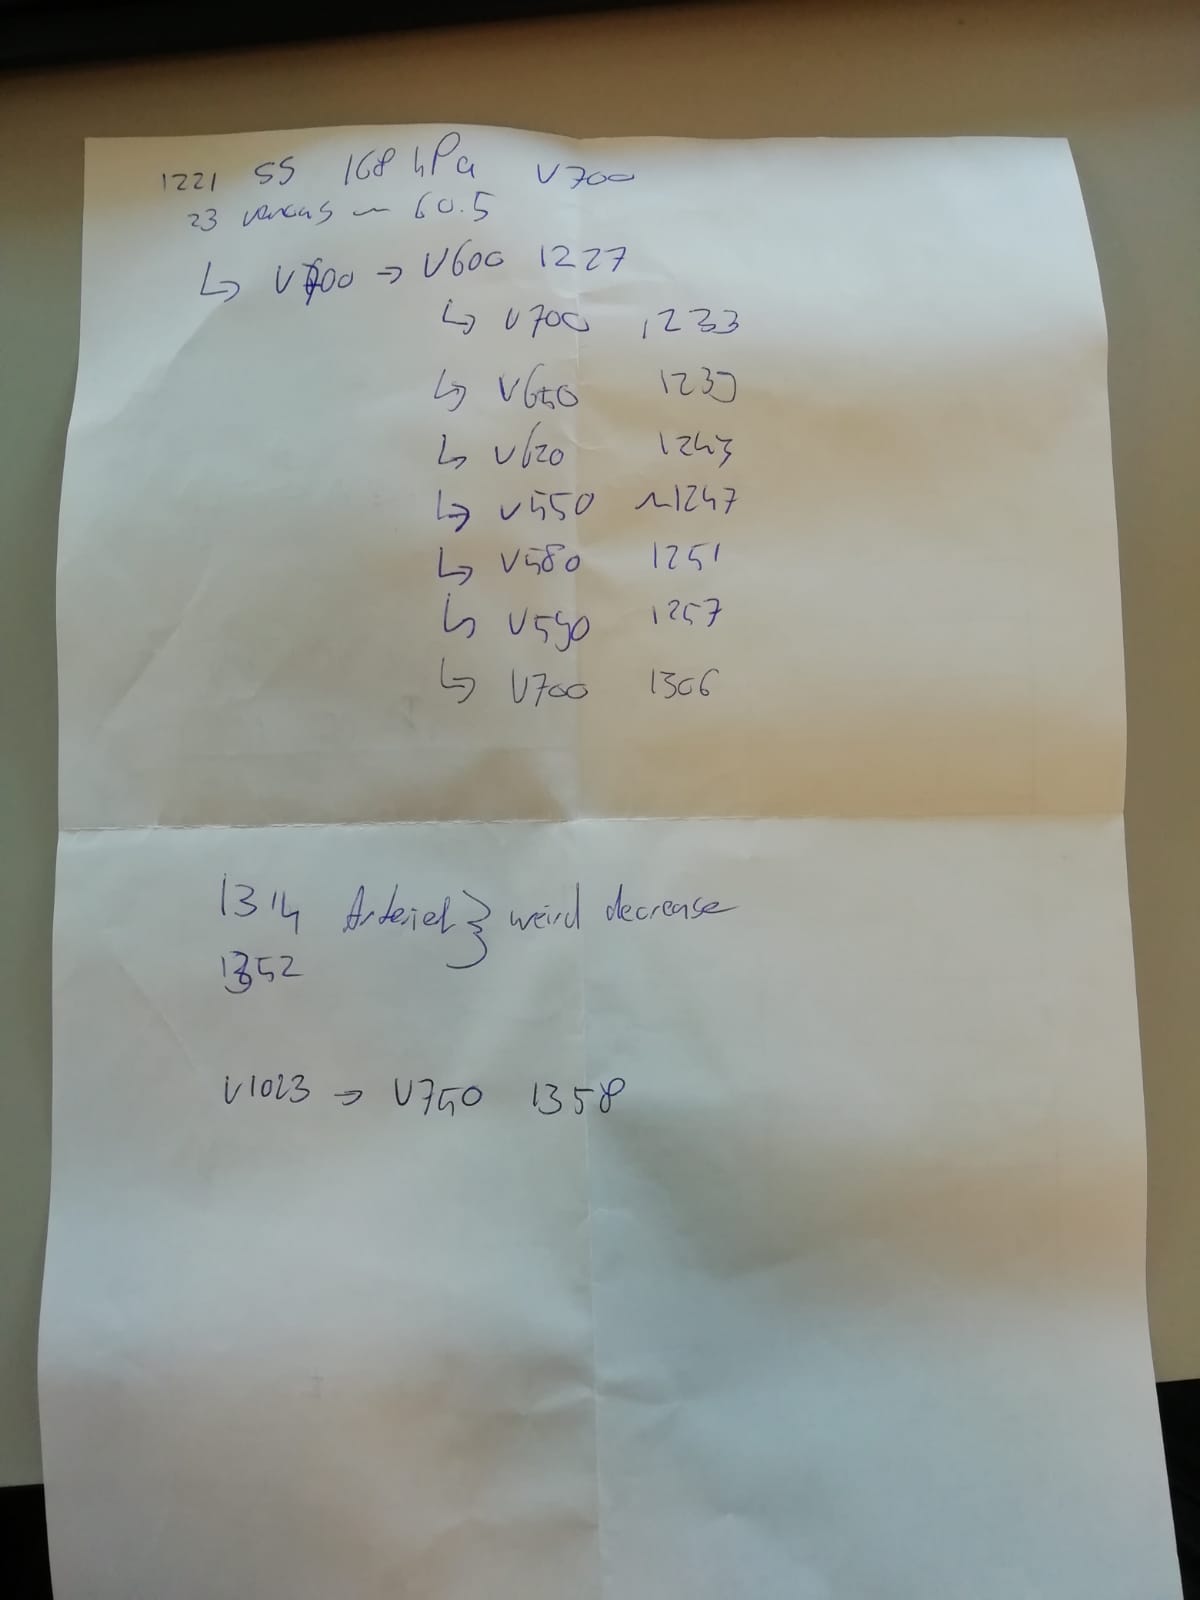 1221 SS 168 hPa V700
23 venous ~ 60.5
↳ V700 → V600 1227
↳ V700 1233
↳ V650 1239
↳ V620 1243
↳ V550 ~1247
↳ V580 1251
↳ V590 1257
↳ V700 1306
1314 Arterial } weird decrease
1352
V1023 → V750 1358